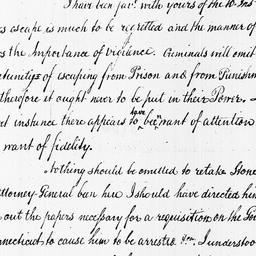 I have been fav.d with yours of the 10 Ins
s ascape is much to be regretted and the manner of
s the Importance of vigilance. Criminals will omit
rtunities of escaping from Prison and from Punishm
therefore it ought never to be put in their Power.
et instance there appears to have been want of attention
want of fidelity.
Nothing should be omitted to retake Stone
Attorney General been here I should have directed him
out the papers necessary for a requisition on the Gov
nnecticut to cause him to be arrested. I understoo